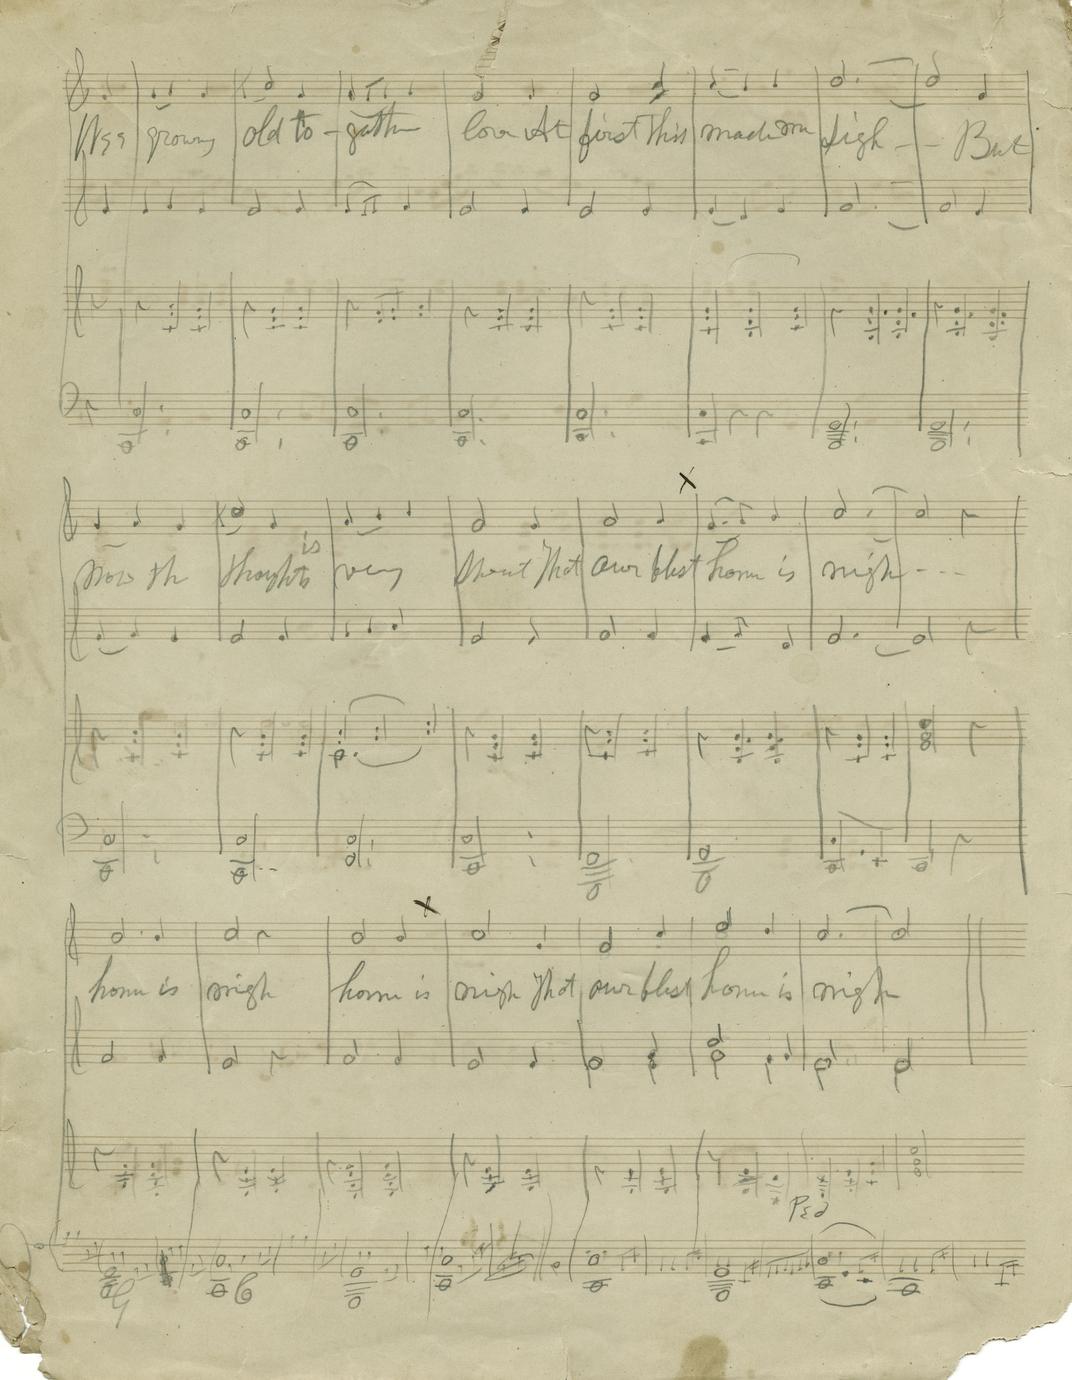 We're growing old to-gether love At first This made me sigh - - But
Now the thoughts is very That our blest home is nigh - - -
home is nigh home is nigh That our blest home is nigh
Ped